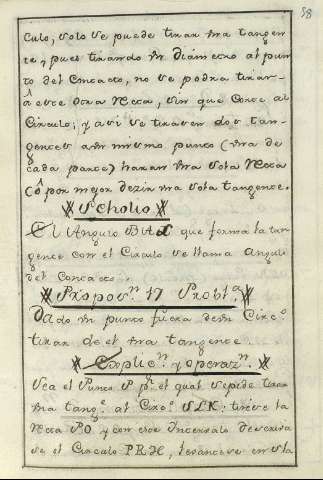 58
culo, solo se puede tirar vna tangen
te, pues tirando vn diametro al pun
to del Contacto, no se podra tirar
à este otra Recta, sin que Corte al
Circulo; y asi se tirasen dos tan-
gentes a un mismo punto (vna de
cada parte) haran vna sola Recta
(ô por mejor dezir vna sola tangente.
Scholio
El Angulo BAX que forma la tan
gente con el Circulo se llama Angulo
del Contacto.
Propos.n 17 Probl.a
Dado vn punto fuera de vn Circ.o
tirar de el vna tangente.
Explic.n y operaz.n
Sea el Punto P p.r el qual se pide tirar
vna tang.e al Circ.o SLK: tirese la
Recta PO y con este Intervalo descriva
se el Circulo PRH, levantese en sla